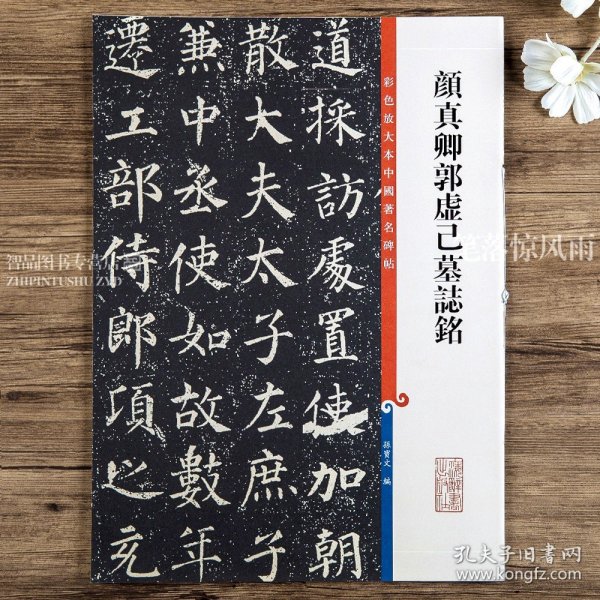 顔真卿郭虚己墓誌銘
彩色放大本中國著名碑帖
孫寶文 編
道採訪處置使加朝
散大夫太子左庶子
兼中丞使如故數年
遷工部侍郎項之充
上海辭書出版社
笔落惊风雨
智品图书专营店
ZHIPINTUSHUZYD
孔夫子旧书网
www.kongfz.com